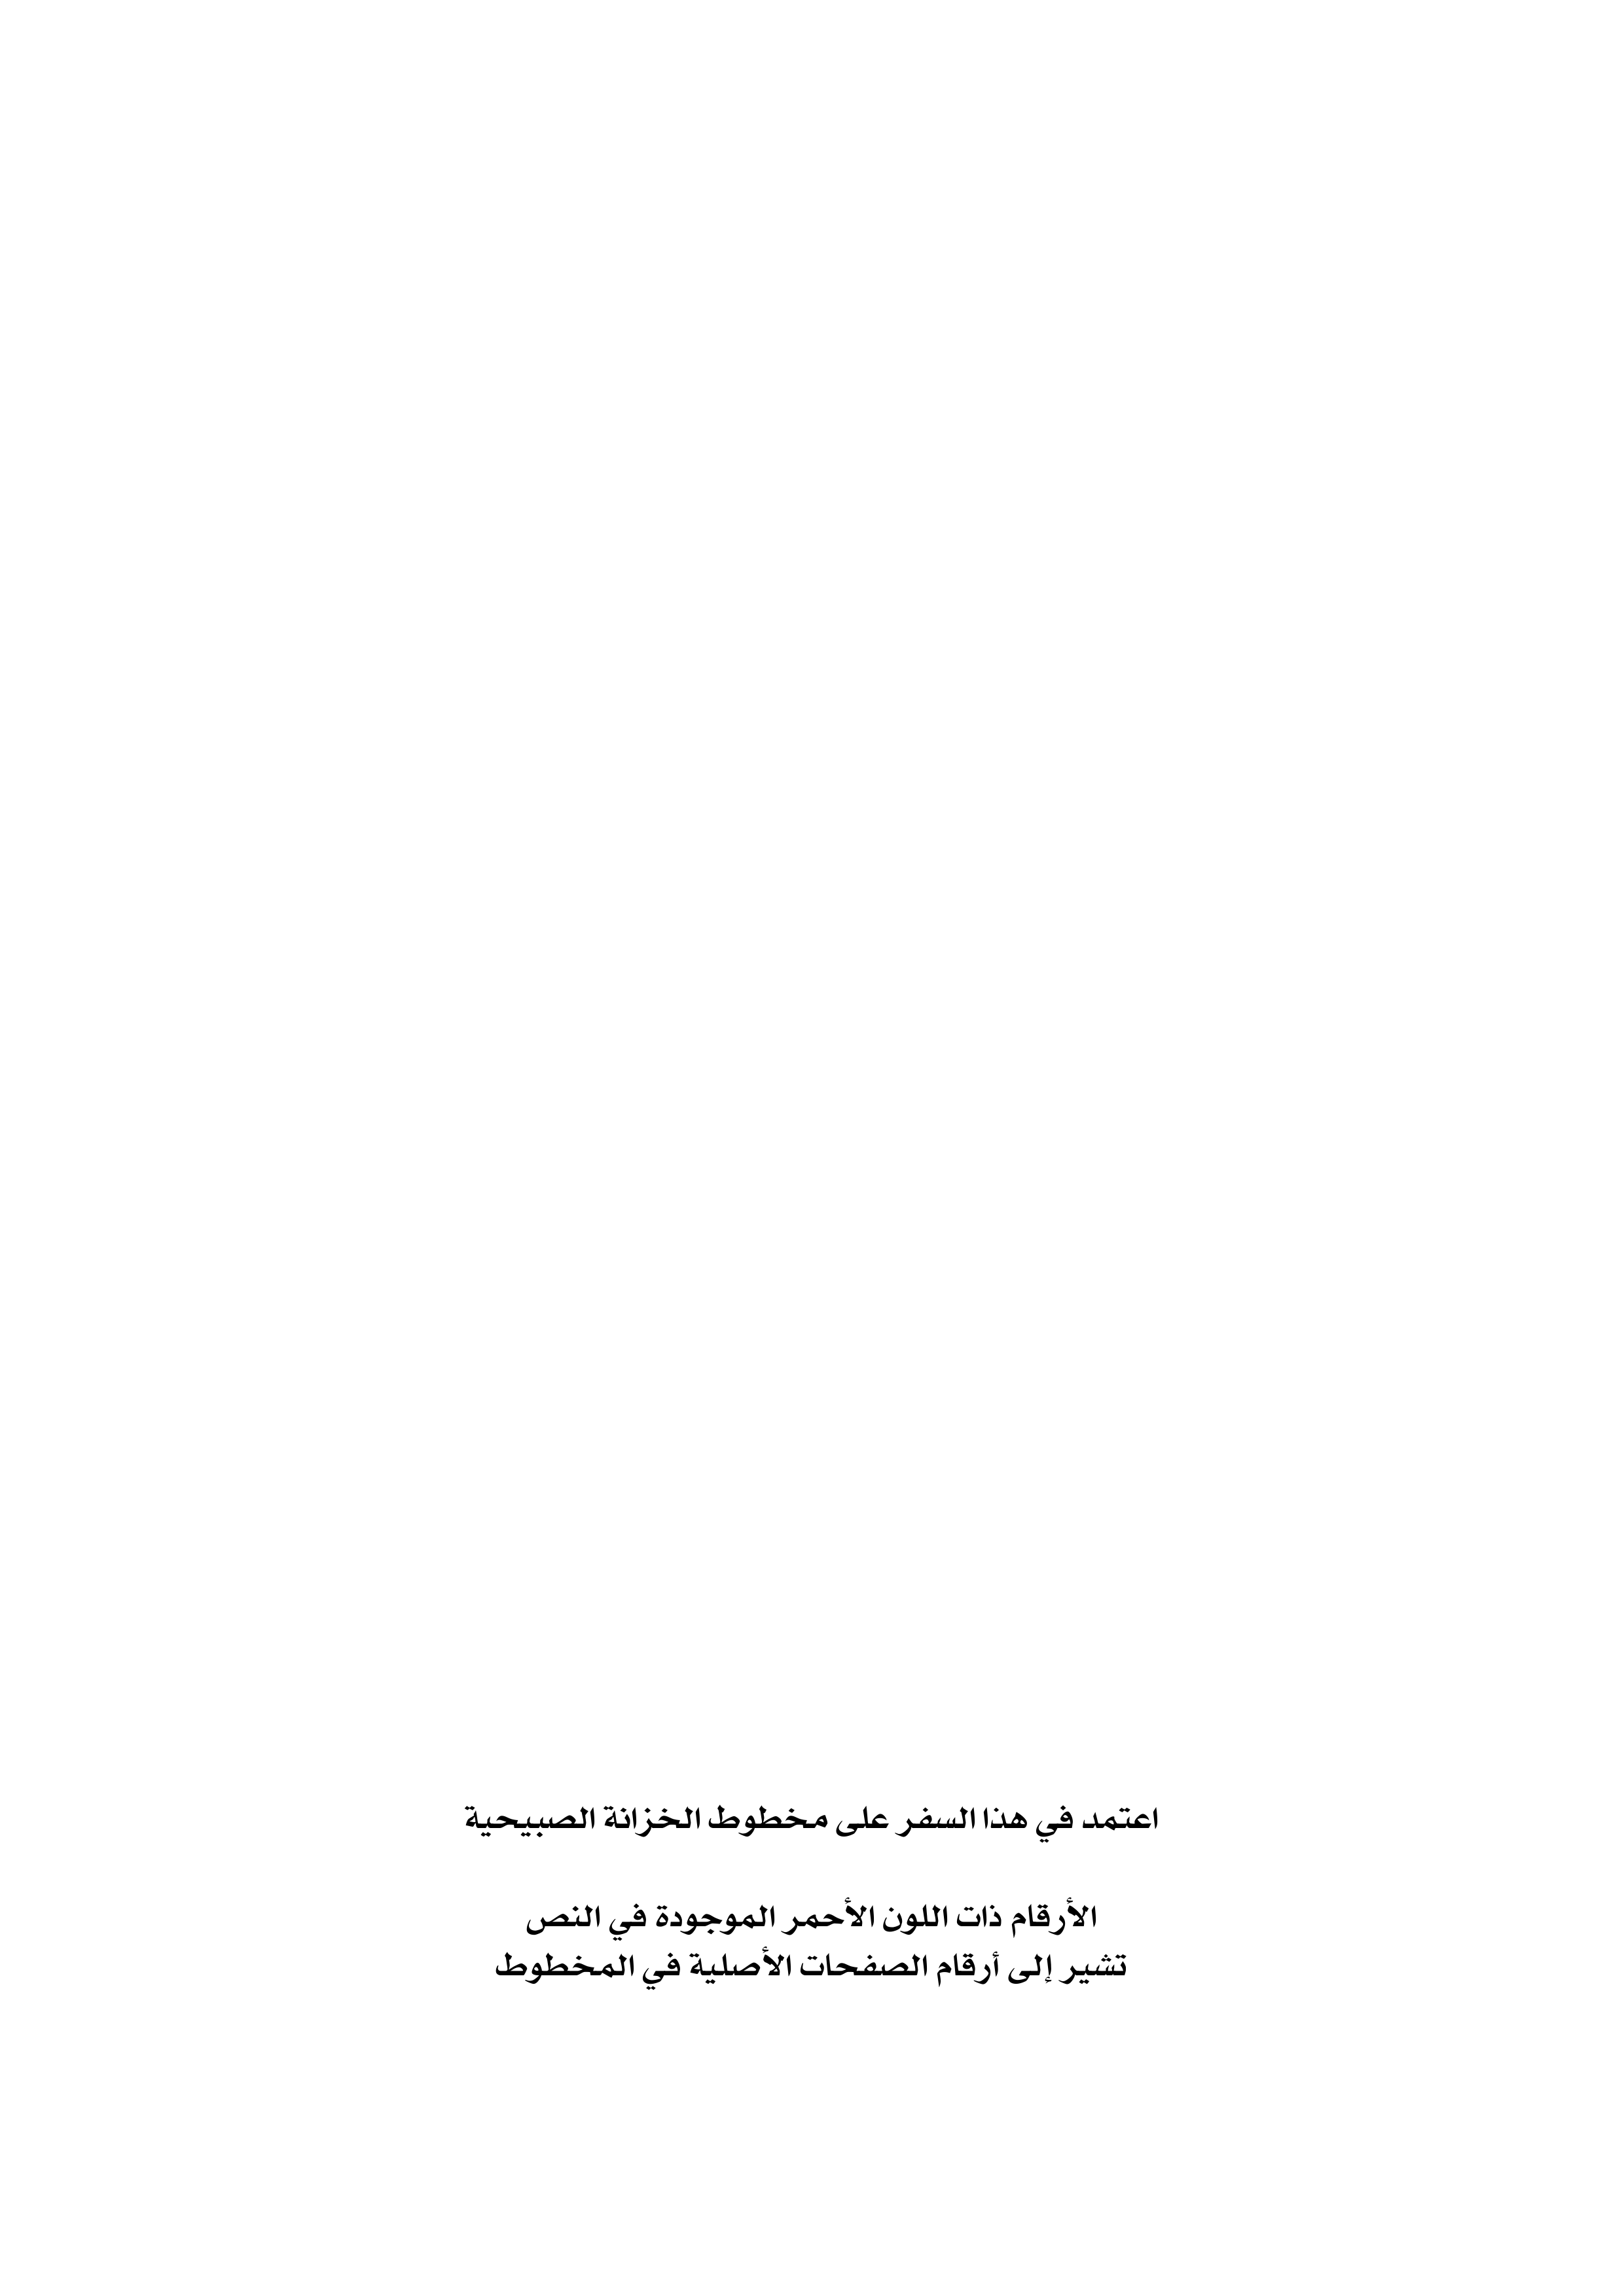 اعتمد في هذا السفر على مخطوط الخزانة الصبيحية
الأرقام ذات اللون الأحمر الموجودة في النص
تشير إلى أرقام الصفحات الأصلية في المخطوط